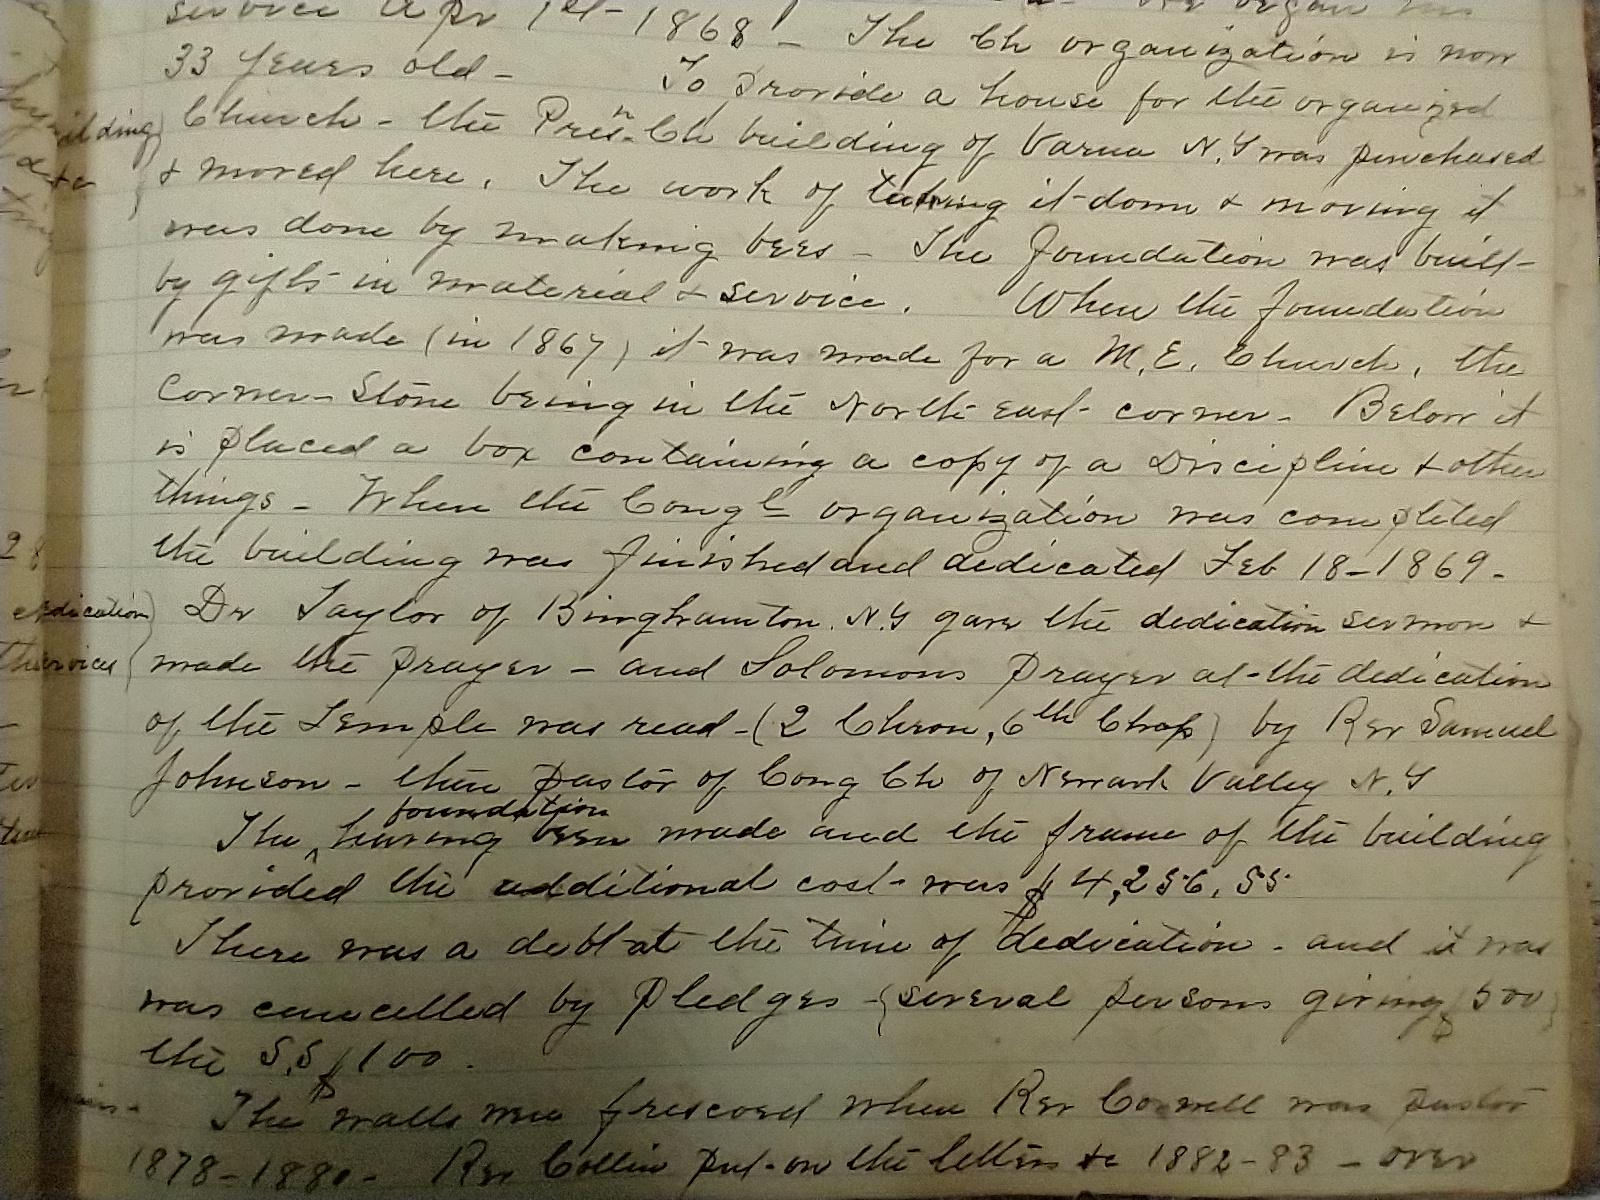 service Apr 1st - 1868 - The Ch organization is now
33 years old - To provide a house for the organized
Church - the Presn. Ch building of Varna N.Y was purchased
& moved here. The work of taking it down & moving it
was done by making bees - The foundation was built -
by gifts in material & service. When the foundation
was made (in 1867) it was made for a M.E. Church, the
Corner-Stone being in the North east corner - Below it
is placed a box containing a copy of a Discipline & other
things - When the Congl organization was completed
the building was finished and dedicated Feb 18 - 1869 -
Dr Taylor of Binghamton. N.Y gave the dedication sermon &
made the prayer - and Solomons prayer at the dedication
of the Temple was read - (2 Chron, 6th Chap) by Rev Samuel
Johnson - then pastor of Cong Ch of Newark Valley N.Y
The foundation having been made and the frame of the building
provided the additional cost was $4,256.55
There was a debt at the time of dedication - and it was
was cancelled by pledges - (several persons giving $500)
the S.S $100.
The walls were frescoed when Rev Cornell was pastor
1878 - 1880 - Rev Collin put on the letters &c 1882-83 - over